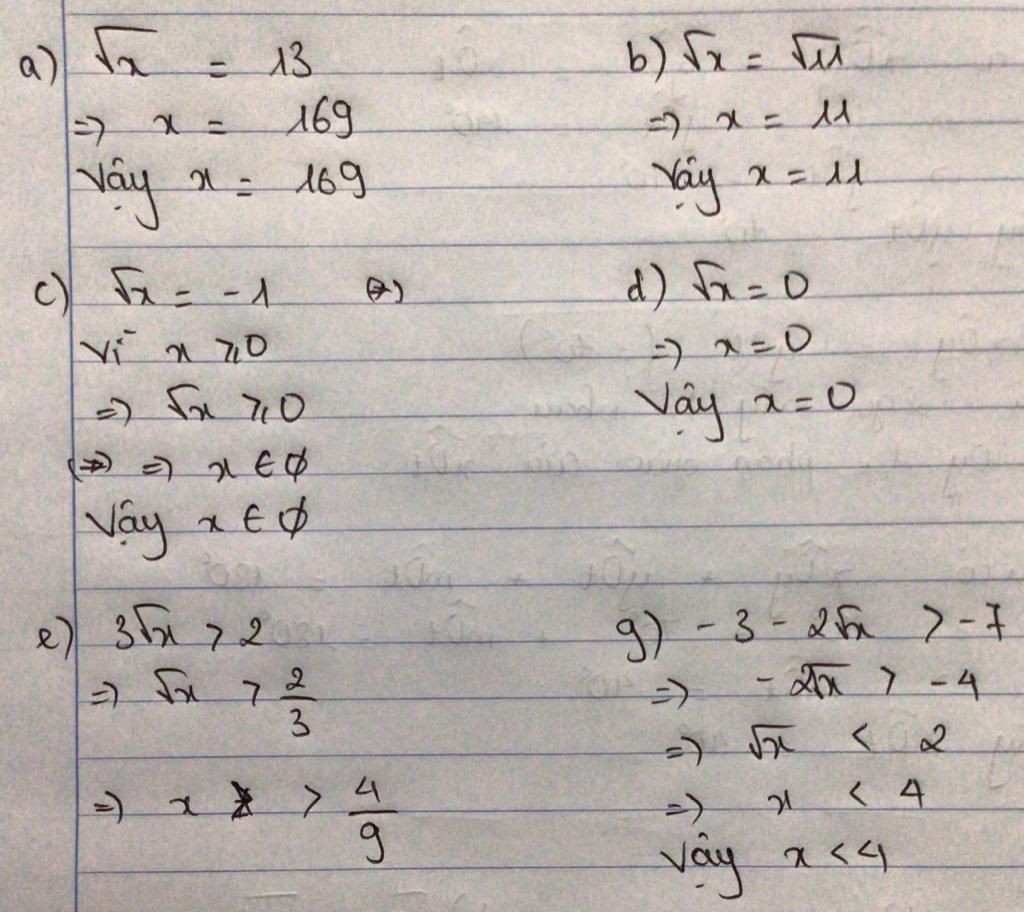 a) √x = 13
=> x = 169
Vậy x = 169
b) √x = √11
=> x = 11
Vậy x = 11
c) √x = -1
Vì x ⩾ 0
=> √x ⩾ 0
=> x ∈ ∅
Vậy x ∈ ∅
d) √x = 0
=> x = 0
Vậy x = 0
e) 3√x > 2
=> √x > 2/3
=> x > 4/9
g) - 3 - 2√x > -7
=> - 2√x > -4
=> √x < 2
=> x < 4
Vậy x < 4